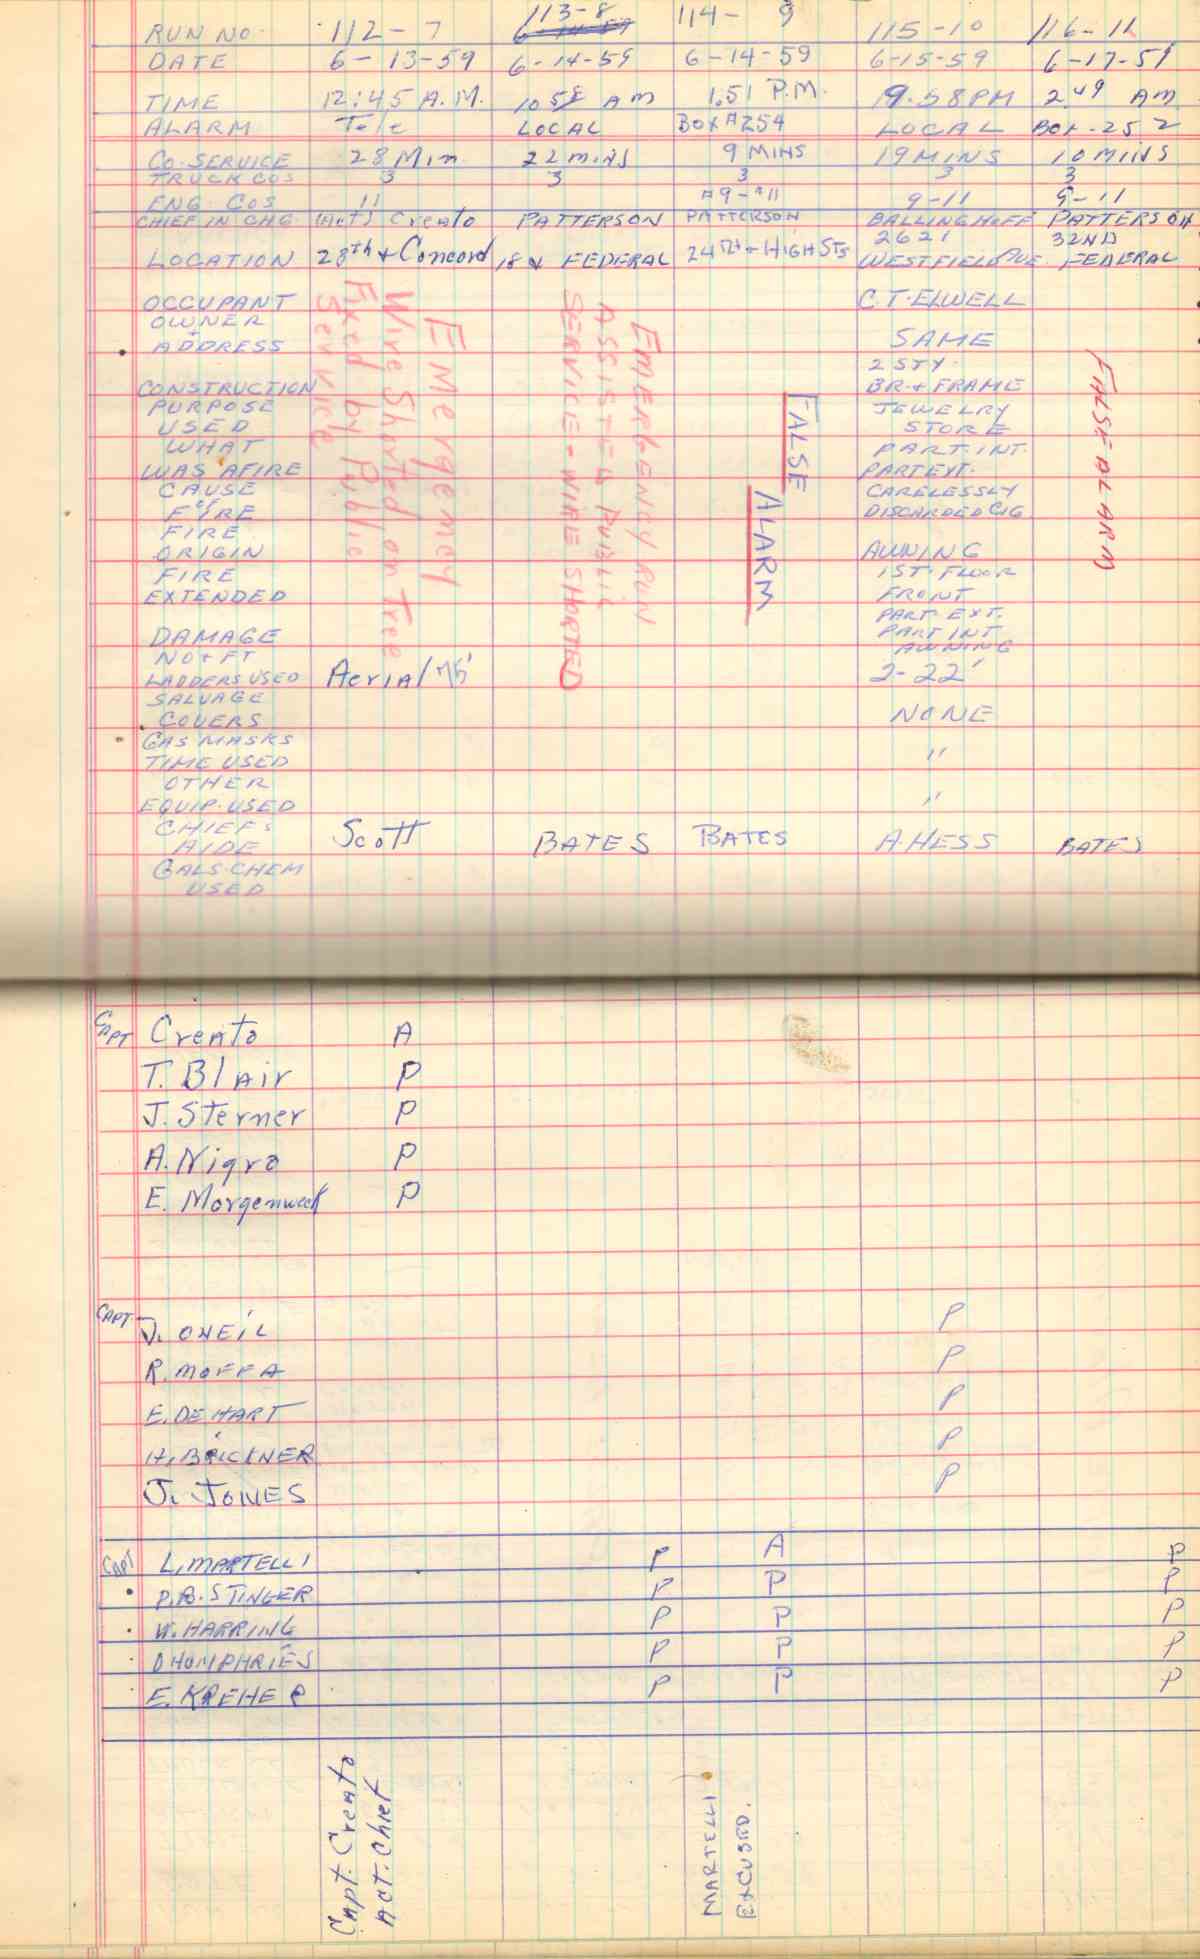 RUN NO. 112-7 113-8 114-9 115-10 116-11
DATE 6-13-59 6-14-59 6-14-59 6-15-59 6-17-59
TIME 12:45 A.M. 10 58 AM 1.51 P.M. 9.58 PM 2.49 AM
ALARM Tele LOCAL BOX #254 LOCAL BOX-252
CO. SERVICE 28 Min. 22 mins 9 MINS 19 MINS 10 MINS
TRUCK COS 3 3 3 3 3
ENG. COS 11 #9-#11 9-11 9-11
CHIEF IN CHG. (Act) Creato PATTERSON PATTERSON BALLINGHOFF PATTERSON
LOCATION 28th & Concord 18 & FEDERAL 24TH & HIGH STS 2621 WESTFIELD AVE. 32ND FEDERAL
OCCUPANT C.T. ELWELL
OWNER
ADDRESS SAME
2 STY.
CONSTRUCTION BR. & FRAME
PURPOSE JEWELRY
USED STORE
WHAT PART. INT.
WAS AFIRE PART EXT.
CAUSE CARELESSLY
OF FIRE DISCARDED CIG
FIRE
ORIGIN AWNING
FIRE 1ST. FLOOR
EXTENDED FRONT
PART EXT.
DAMAGE PART INT
NO & FT AWNING
LADDERS USED Aerial 75' 2-22'
SALVAGE
COVERS NONE
GAS MASKS
TIME USED "
OTHER
EQUIP. USED "
CHIEFS
AIDE Scott BATES BATES A. HESS BATES
GALS. CHEM
USED
EMergency
Wire Shorted on Tree
Fixed by Public
Service
EMERGENCY RUN
ASSISTED PUBLIC
SERVICE - WIRE SHORTED
FALSE
ALARM
FALSE ALARM
CAPT Creato A
T. Blair P
J. Sterner P
A. Nigro P
E. Morgenweck P
CAPT J. ONEIL P
R. MOFFA P
E. DEHART P
H. BRICKNER P
J. JONES P
CAPT L. MARTELLI P A P
P.B. STINGER P P P
W. HARRING P P P
D HUMPHRIES P P P
E. KREHER P P P
Capt. Creato
Act. Chief
MARTELLI
EXCUSED.